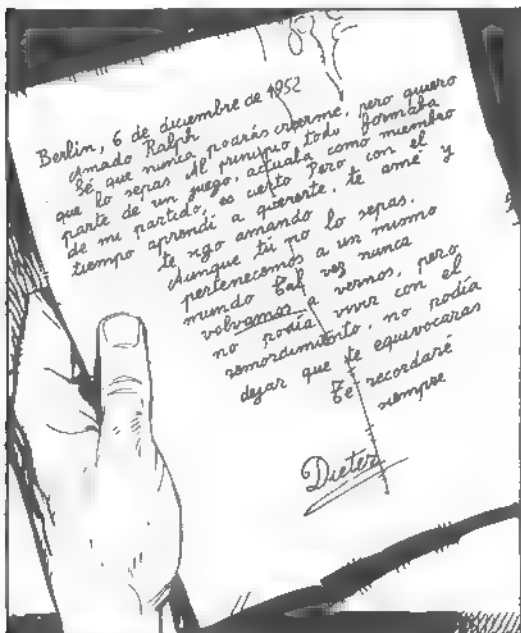 Berlin, 6 de diciembre de 1952
Amado Ralph
Sé que nunca podrás creerme, pero quiero
que lo sepas Al principio todo formaba
parte de un juego, actuaba como miembro
de mi partido, es cierto Pero con el
tiempo aprendí a quererte, te amé y
te sigo amando
Aunque tú no lo sepas,
pertenecemos a un mismo
mundo Tal vez nunca
volvamos a vernos, pero
no podía vivir con el
remordimiento, no podía
dejar que te equivocaras
Te recordaré
siempre
Dieter